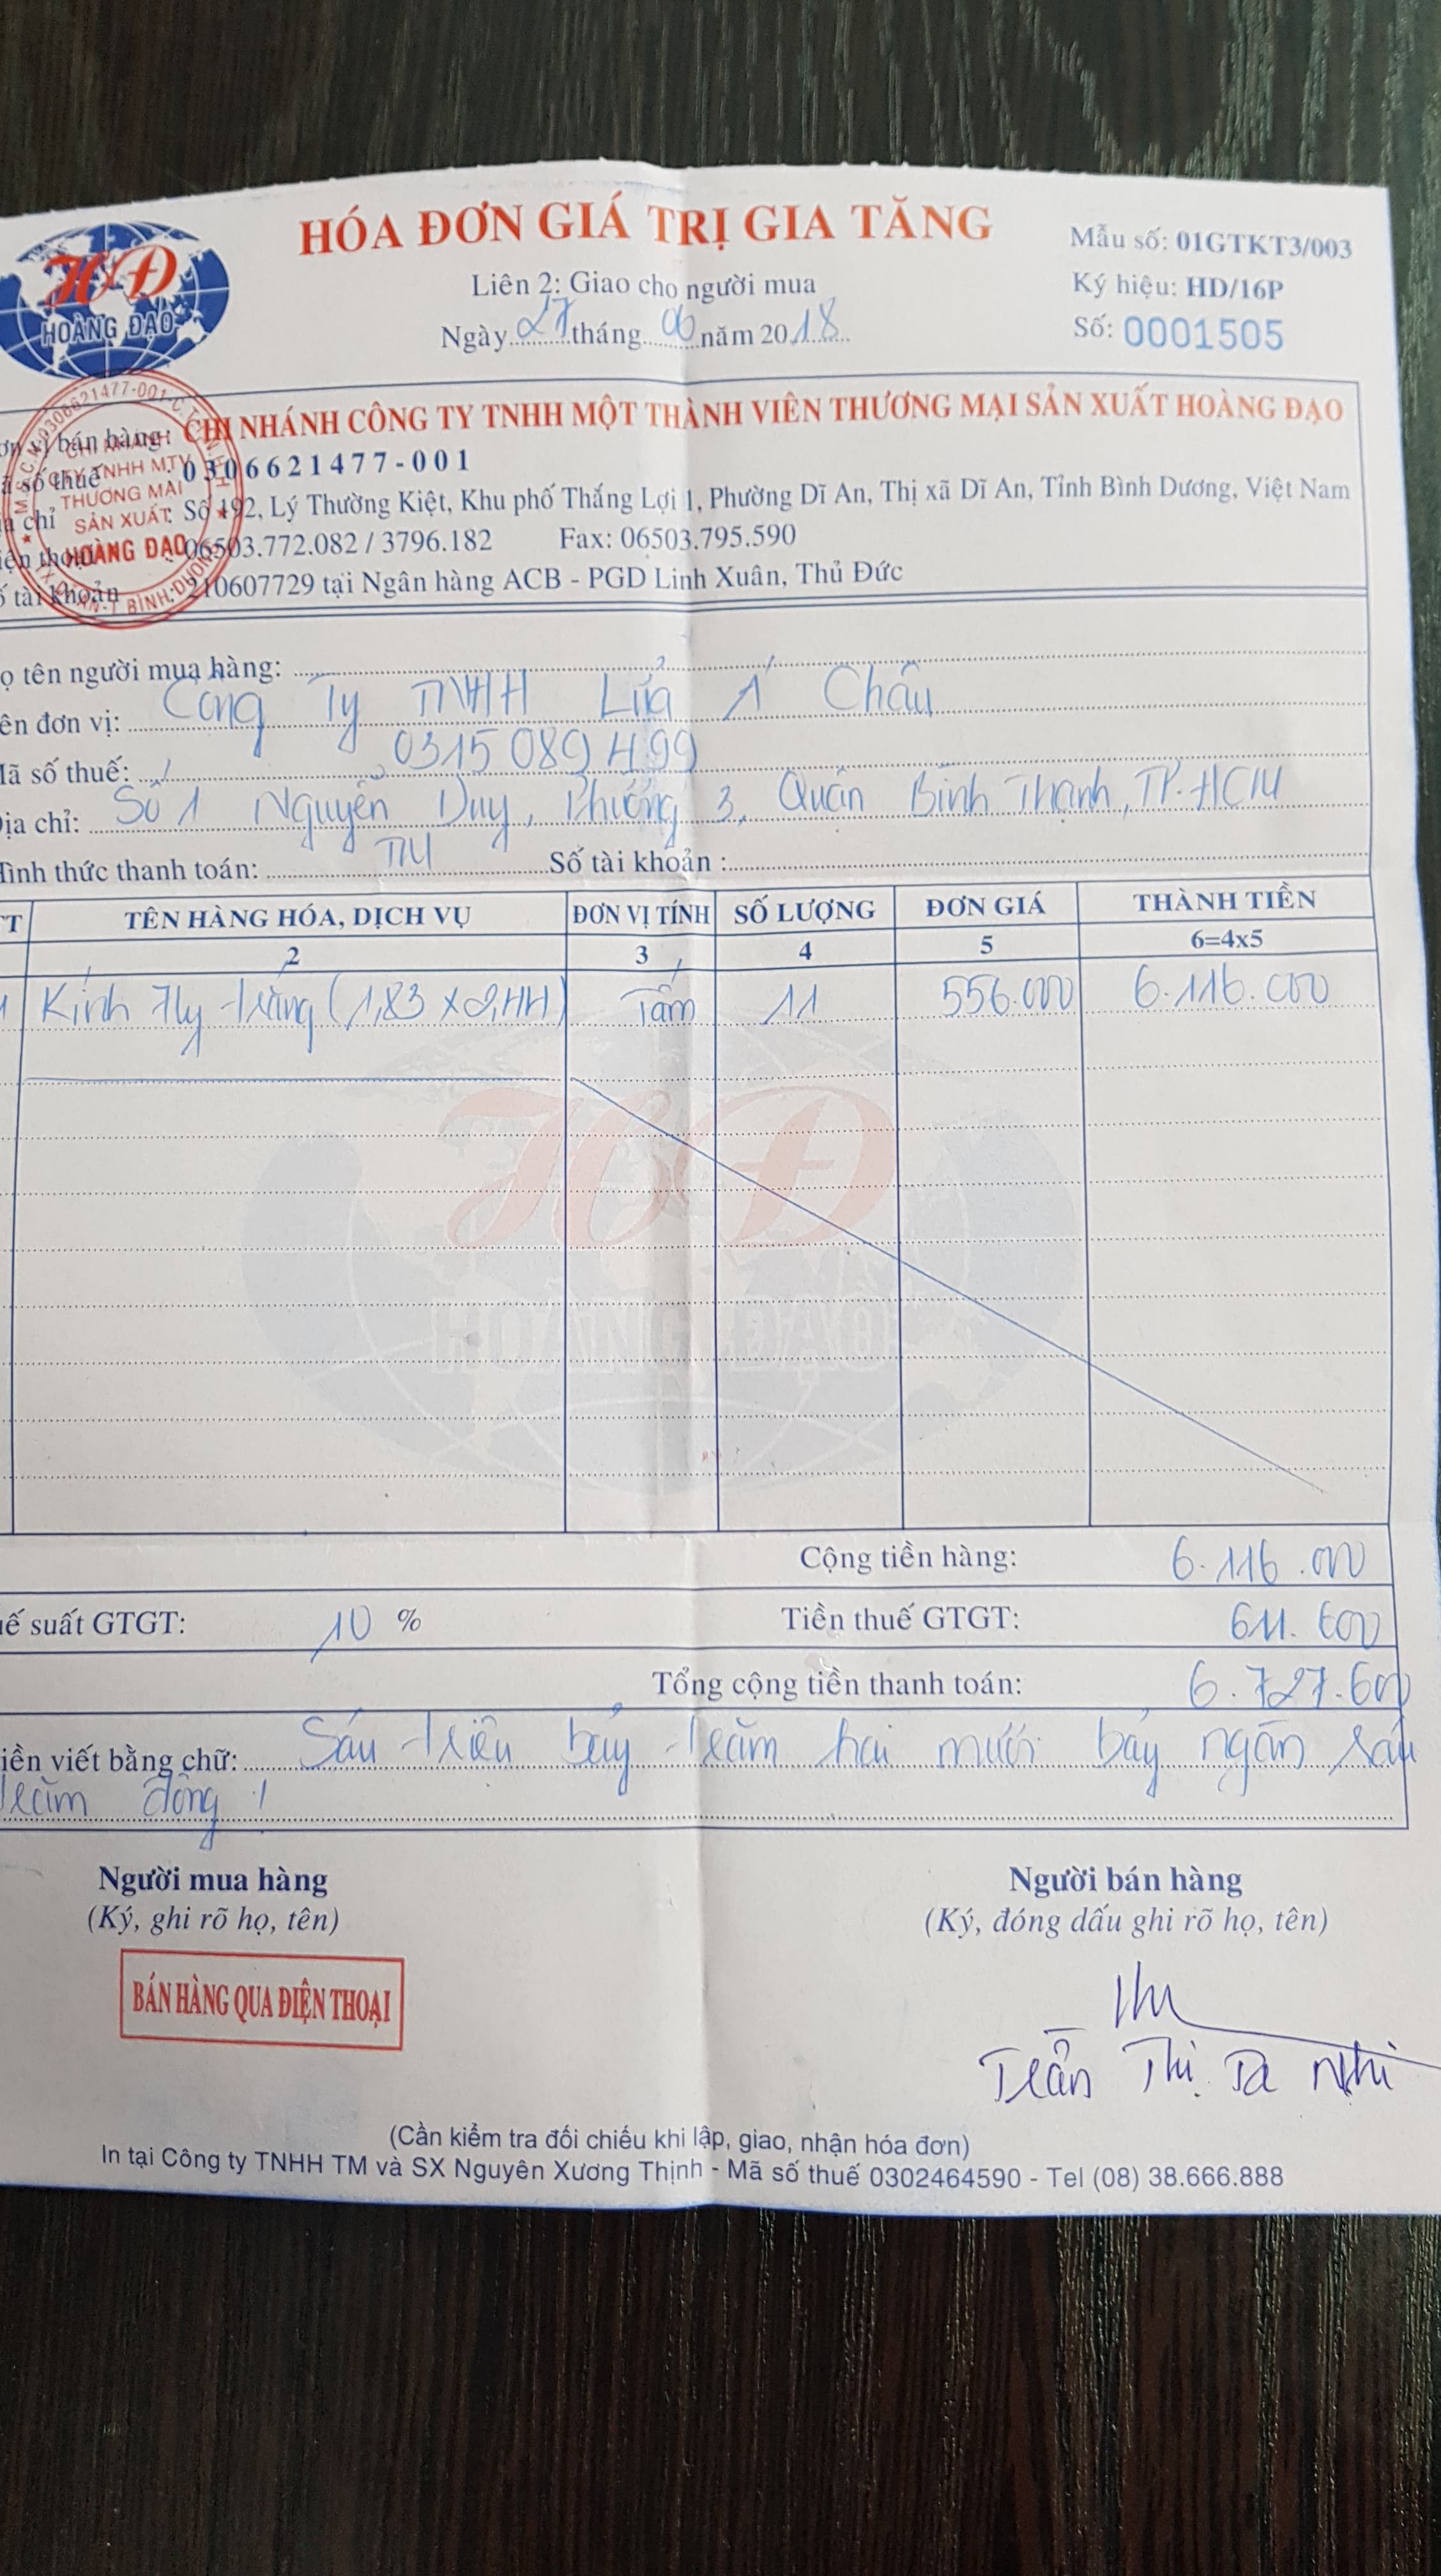 HÓA ĐƠN GIÁ TRỊ GIA TĂNG
Mẫu số: 01GTKT3/003
HĐ
HOÀNG ĐẠO
Liên 2: Giao cho người mua
Ký hiệu: HD/16P
Ngày 27 tháng 06 năm 2018
Số: 0001505
ơn vị bán hàng: CHI NHÁNH CÔNG TY TNHH MỘT THÀNH VIÊN THƯƠNG MẠI SẢN XUẤT HOÀNG ĐẠO
ã số thuế : 0306621477-001
a chỉ : Số 492, Lý Thường Kiệt, Khu phố Thắng Lợi 1, Phường Dĩ An, Thị xã Dĩ An, Tỉnh Bình Dương, Việt Nam
iện thoại : 06503.772.082 / 3796.182 Fax: 06503.795.590
ố tài khoản : 210607729 tại Ngân hàng ACB - PGD Linh Xuân, Thủ Đức
CHI NHÁNH
CTY TNHH MTV
THƯƠNG MẠI
SẢN XUẤT
HOÀNG ĐẠO
ọ tên người mua hàng:
ên đơn vị: Công Ty TNHH Lửa Á Châu
Mã số thuế: 0315089499
Địa chỉ: Số 1 Nguyễn Duy, Phường 3, Quận Bình Thạnh, TP.HCM
Hình thức thanh toán: TM Số tài khoản :
TT TÊN HÀNG HÓA, DỊCH VỤ ĐƠN VỊ TÍNH SỐ LƯỢNG ĐƠN GIÁ THÀNH TIỀN
2 3 4 5 6=4x5
1 Kính 7ly trắng (1,83 x 2,44) Tấm 11 556.000 6.116.000
HĐ
HOÀNG ĐẠO
Cộng tiền hàng: 6.116.000
uế suất GTGT: 10 % Tiền thuế GTGT: 611.600
Tổng cộng tiền thanh toán: 6.727.600
iền viết bằng chữ: Sáu triệu bảy trăm hai mươi bảy ngàn sáu
trăm đồng
Người mua hàng Người bán hàng
(Ký, ghi rõ họ, tên) (Ký, đóng dấu ghi rõ họ, tên)
BÁN HÀNG QUA ĐIỆN THOẠI
Trần Thị Dạ Nhi
(Cần kiểm tra đối chiếu khi lập, giao, nhận hóa đơn)
In tại Công ty TNHH TM và SX Nguyên Xương Thịnh - Mã số thuế 0302464590 - Tel (08) 38.666.888